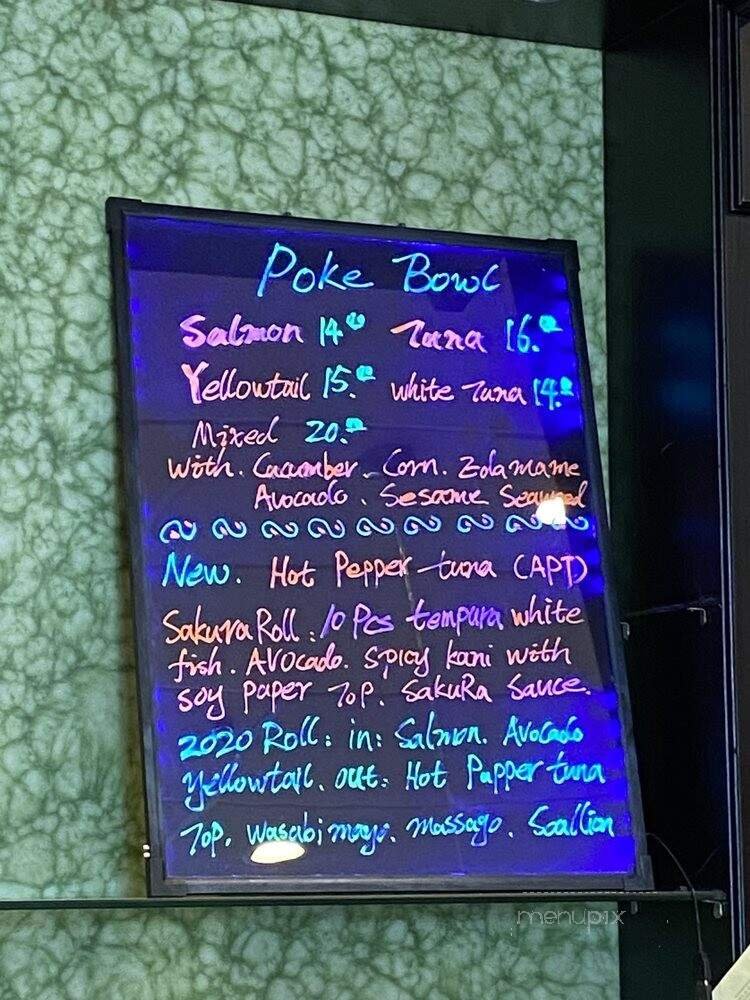 Poke Bowl
Salmon 14.00 Tuna 16.00
Yellowtail 15.00 white Tuna 14.00
Mixed 20.00
with. Cucumber. Corn. Edamame
Avocado. Sesame Seaweed
New. Hot Pepper tuna (APT)
Sakura Roll: 10 Pcs tempura white
fish. Avocado. spicy kani with
soy paper Top. SakuRa Sauce.
2020 Roll: in: Salmon. Avocado
yellowtail. out: Hot Papper tuna
Top. Wasabi mayo. massago. Scallion
menupix